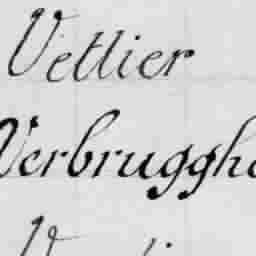 Vetlier
Verbruggh